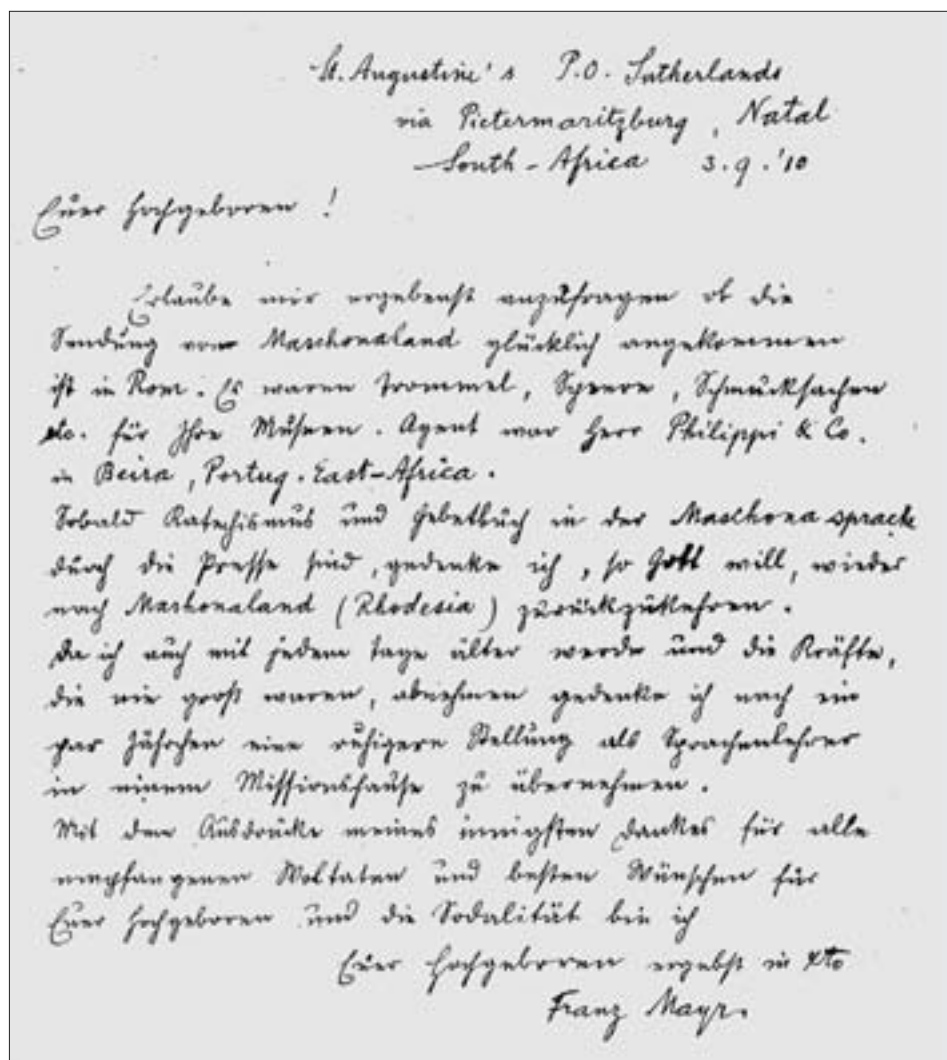 St. Augustine's P.O. Sutherlands
via Pietermaritzburg, Natal
South-Africa 3.9.'10
Euer Hochgeboren!
Erlaube mir ergebenst anzufragen ob die
Sendung vom Maschonaland glücklich angekommen
ist in Rom. Es waren Trommel, Speere, Schmucksachen
etc. für Ihre Museen. Agent war Herr Philippi & Co.
in Beira, Portug. East-Africa.
Sobald Katechismus und Gebetbuch in der Maschona sprache
durch die Presse sind, gedenke ich, so Gott will, wieder
nach Mashonaland (Rhodesia) zurückzukehren.
Da ich auch mit jedem Tage älter werde und die Kräfte,
die nie groß waren, abnehmen gedenke ich nach ein
paar Jährchen eine ruhigere Stellung als Sprachenlehrer
in einem Missionshause zu übernehmen.
Mit dem Ausdrucke meines innigsten Dankes für alle
empfangenen Woltaten und besten Wünschen für
Euer Hochgeboren und die Sodalität bin ich
Euer Hochgeboren ergebst in Xto
Franz Mayr.